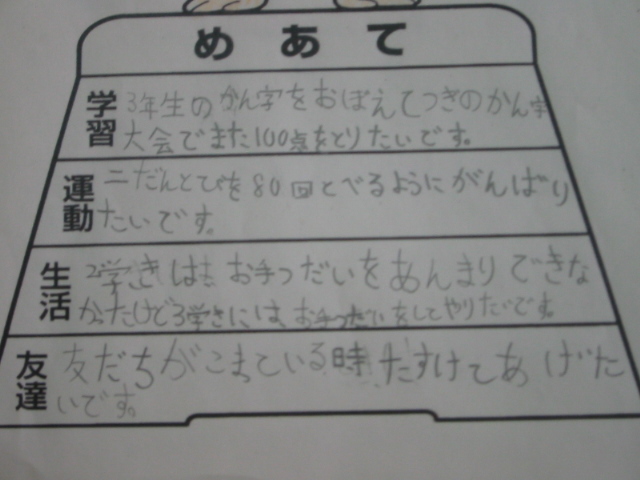 めあて
学習
3年生のかん字をおぼえてつぎのかん字
大会でまた100点をとりたいです。
運動
二だんとびを80回とべるようにがんばり
たいです。
生活
2学きは お手つだいをあんまりできな
かったけど3学きには、お手つだいをしてやりたいです。
友達
友だちがこまっている時たすけてあげた
いです。